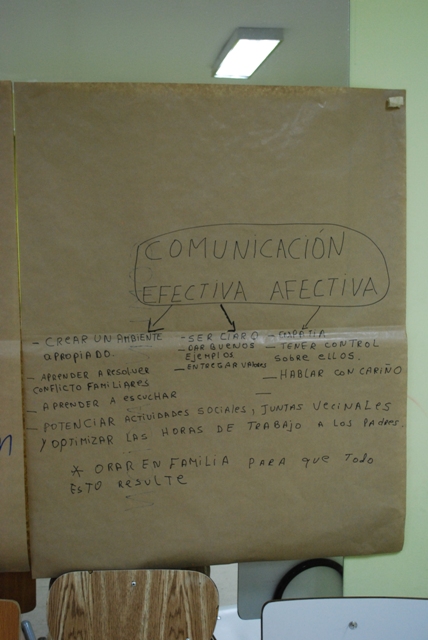 COMUNICACIÓN
EFECTIVA AFECTIVA
- CREAR UN AMBIENTE
apropiado.
- APRENDER A RESOLVER
CONFLICTO FAMILIARES
- APRENDER A ESCUCHAR
- SER CLARO
- DAR BUENOS
EJEMPLOS
- ENTREGAR VALORES
- EMPATIA
- TENER CONTROL
SOBRE ELLOS.
- HABLAR CON CARIÑO
- POTENCIAR ACTIVIDADES SOCIALES, JUNTAS VECINALES
Y OPTIMIZAR LAS HORAS DE TRABAJO A LOS PADRES.
* ORAR EN FAMILIA PARA QUE TODO
ESTO RESULTE